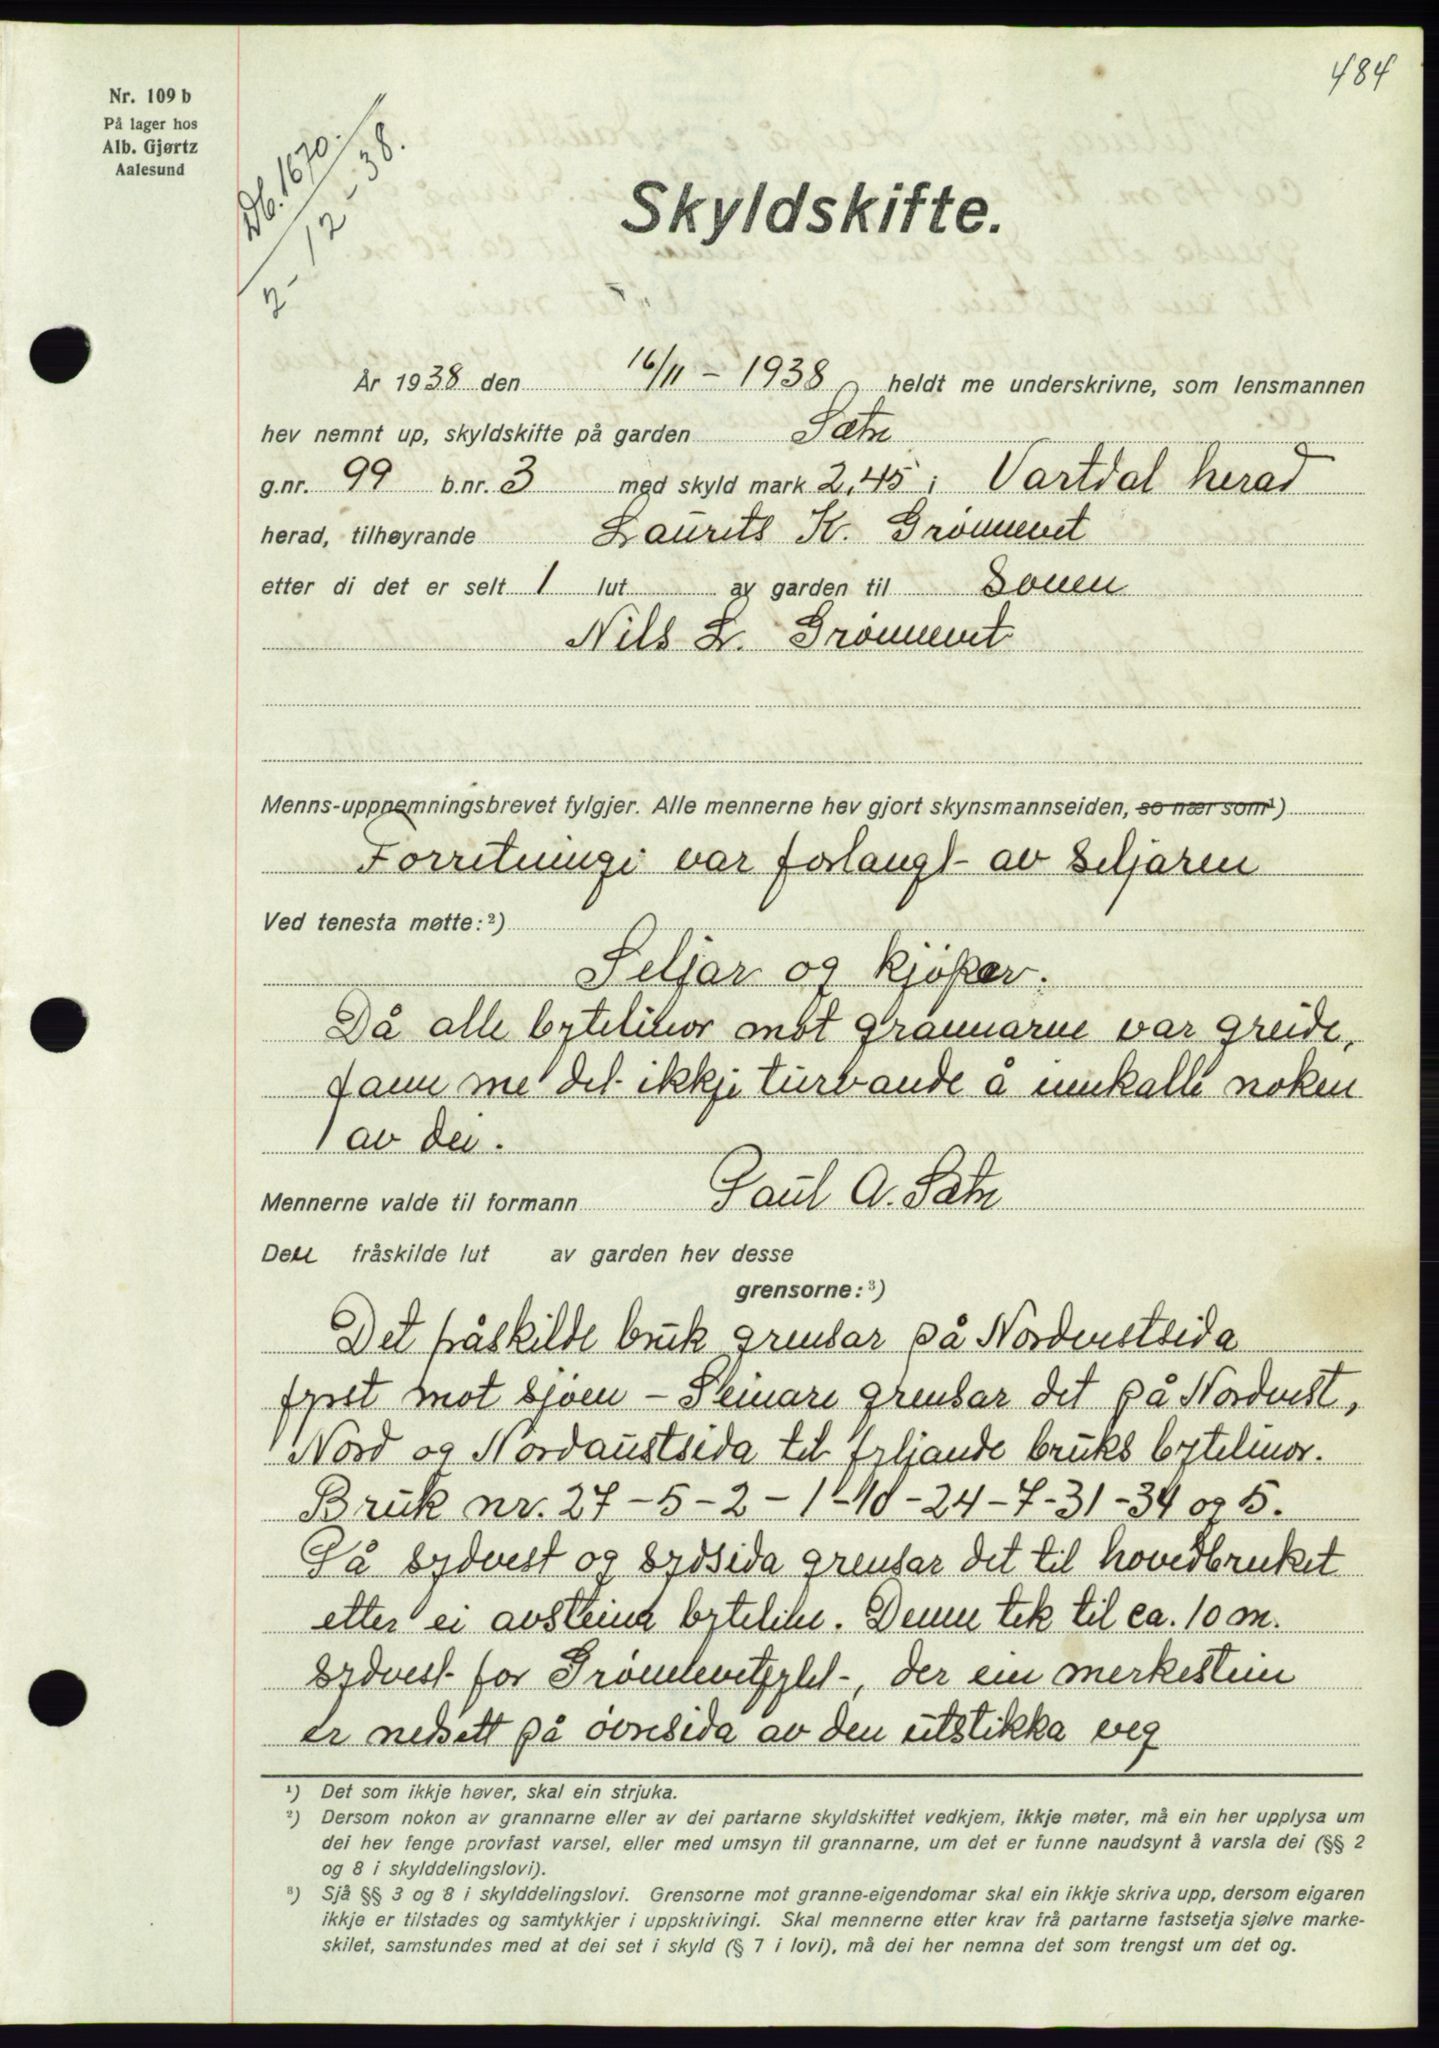 484
Nr. 109 b
På lager hos
Alb. Gjørtz
Aalesund
Db. 1670.
2-12-38.
Skyldskifte.
År 1938 den 16/11 - 1938 heldt me underskrivne, som lensmannen
hev nemnt up, skyldskifte på garden Sætre
g.nr. 99 b.nr. 3 med skyld mark 2,45 i Vartdal herad
herad, tilhøyrande Laurits K. Grønnevet
etter di det er selt 1 lut av garden til Sonen
Nils L. Grønnevet
Menns-uppnemningsbrevet fylgjer. Alle mennerne hev gjort skynsmannseiden, so nær som¹)
Forretningi var forlangt av seljaren
Ved tenesta møtte:²)
Seljar og kjøper.
Då alle bytelinor mot grannarne var greide,
fann me det ikkje turvande å innkalle noken
av dei.
Mennerne valde til formann Paul A. Sætre
Den fråskilde lut av garden hev desse
grensorne:³)
Det fråskilde bruk grensar på Nordvestsida
fyrst mot sjøen - Seinare grensar det på Nordvest,
Nord og Nordaustsida til fyljande bruks bytelinor.
Bruk nr. 27-5-2-1-10-24-7-31-34 og 5.
På sydvest og sydsida grensar det til hovedbruket
etter ei avsteina byteline. Denne tek til ca. 10 m.
sydvest for , der ein merkestein
er nedsett på øvresida av den utstikka veg
¹) Det som ikkje høver, skal ein strjuka.
²) Dersom nokon av grannarne eller av dei partarne skyldskiftet vedkjem, ikkje møter, må ein her upplysa um
dei hev fenge provfast varsel, eller med umsyn til grannarne, um det er funne naudsynt å varsla dei (§§ 2
og 8 i skylddelingslovi).
³) Sjå §§ 3 og 8 i skylddelingslovi. Grensorne mot granne-eigendomar skal ein ikkje skriva upp, dersom eigaren
ikkje er tilstades og samtykkjer i uppskrivingi. Skal mennerne etter krav frå partarne fastsetja sjølve marke-
skilet, samstundes med at dei set i skyld (§ 7 i lovi), må dei her nemna det som trengst um det og.